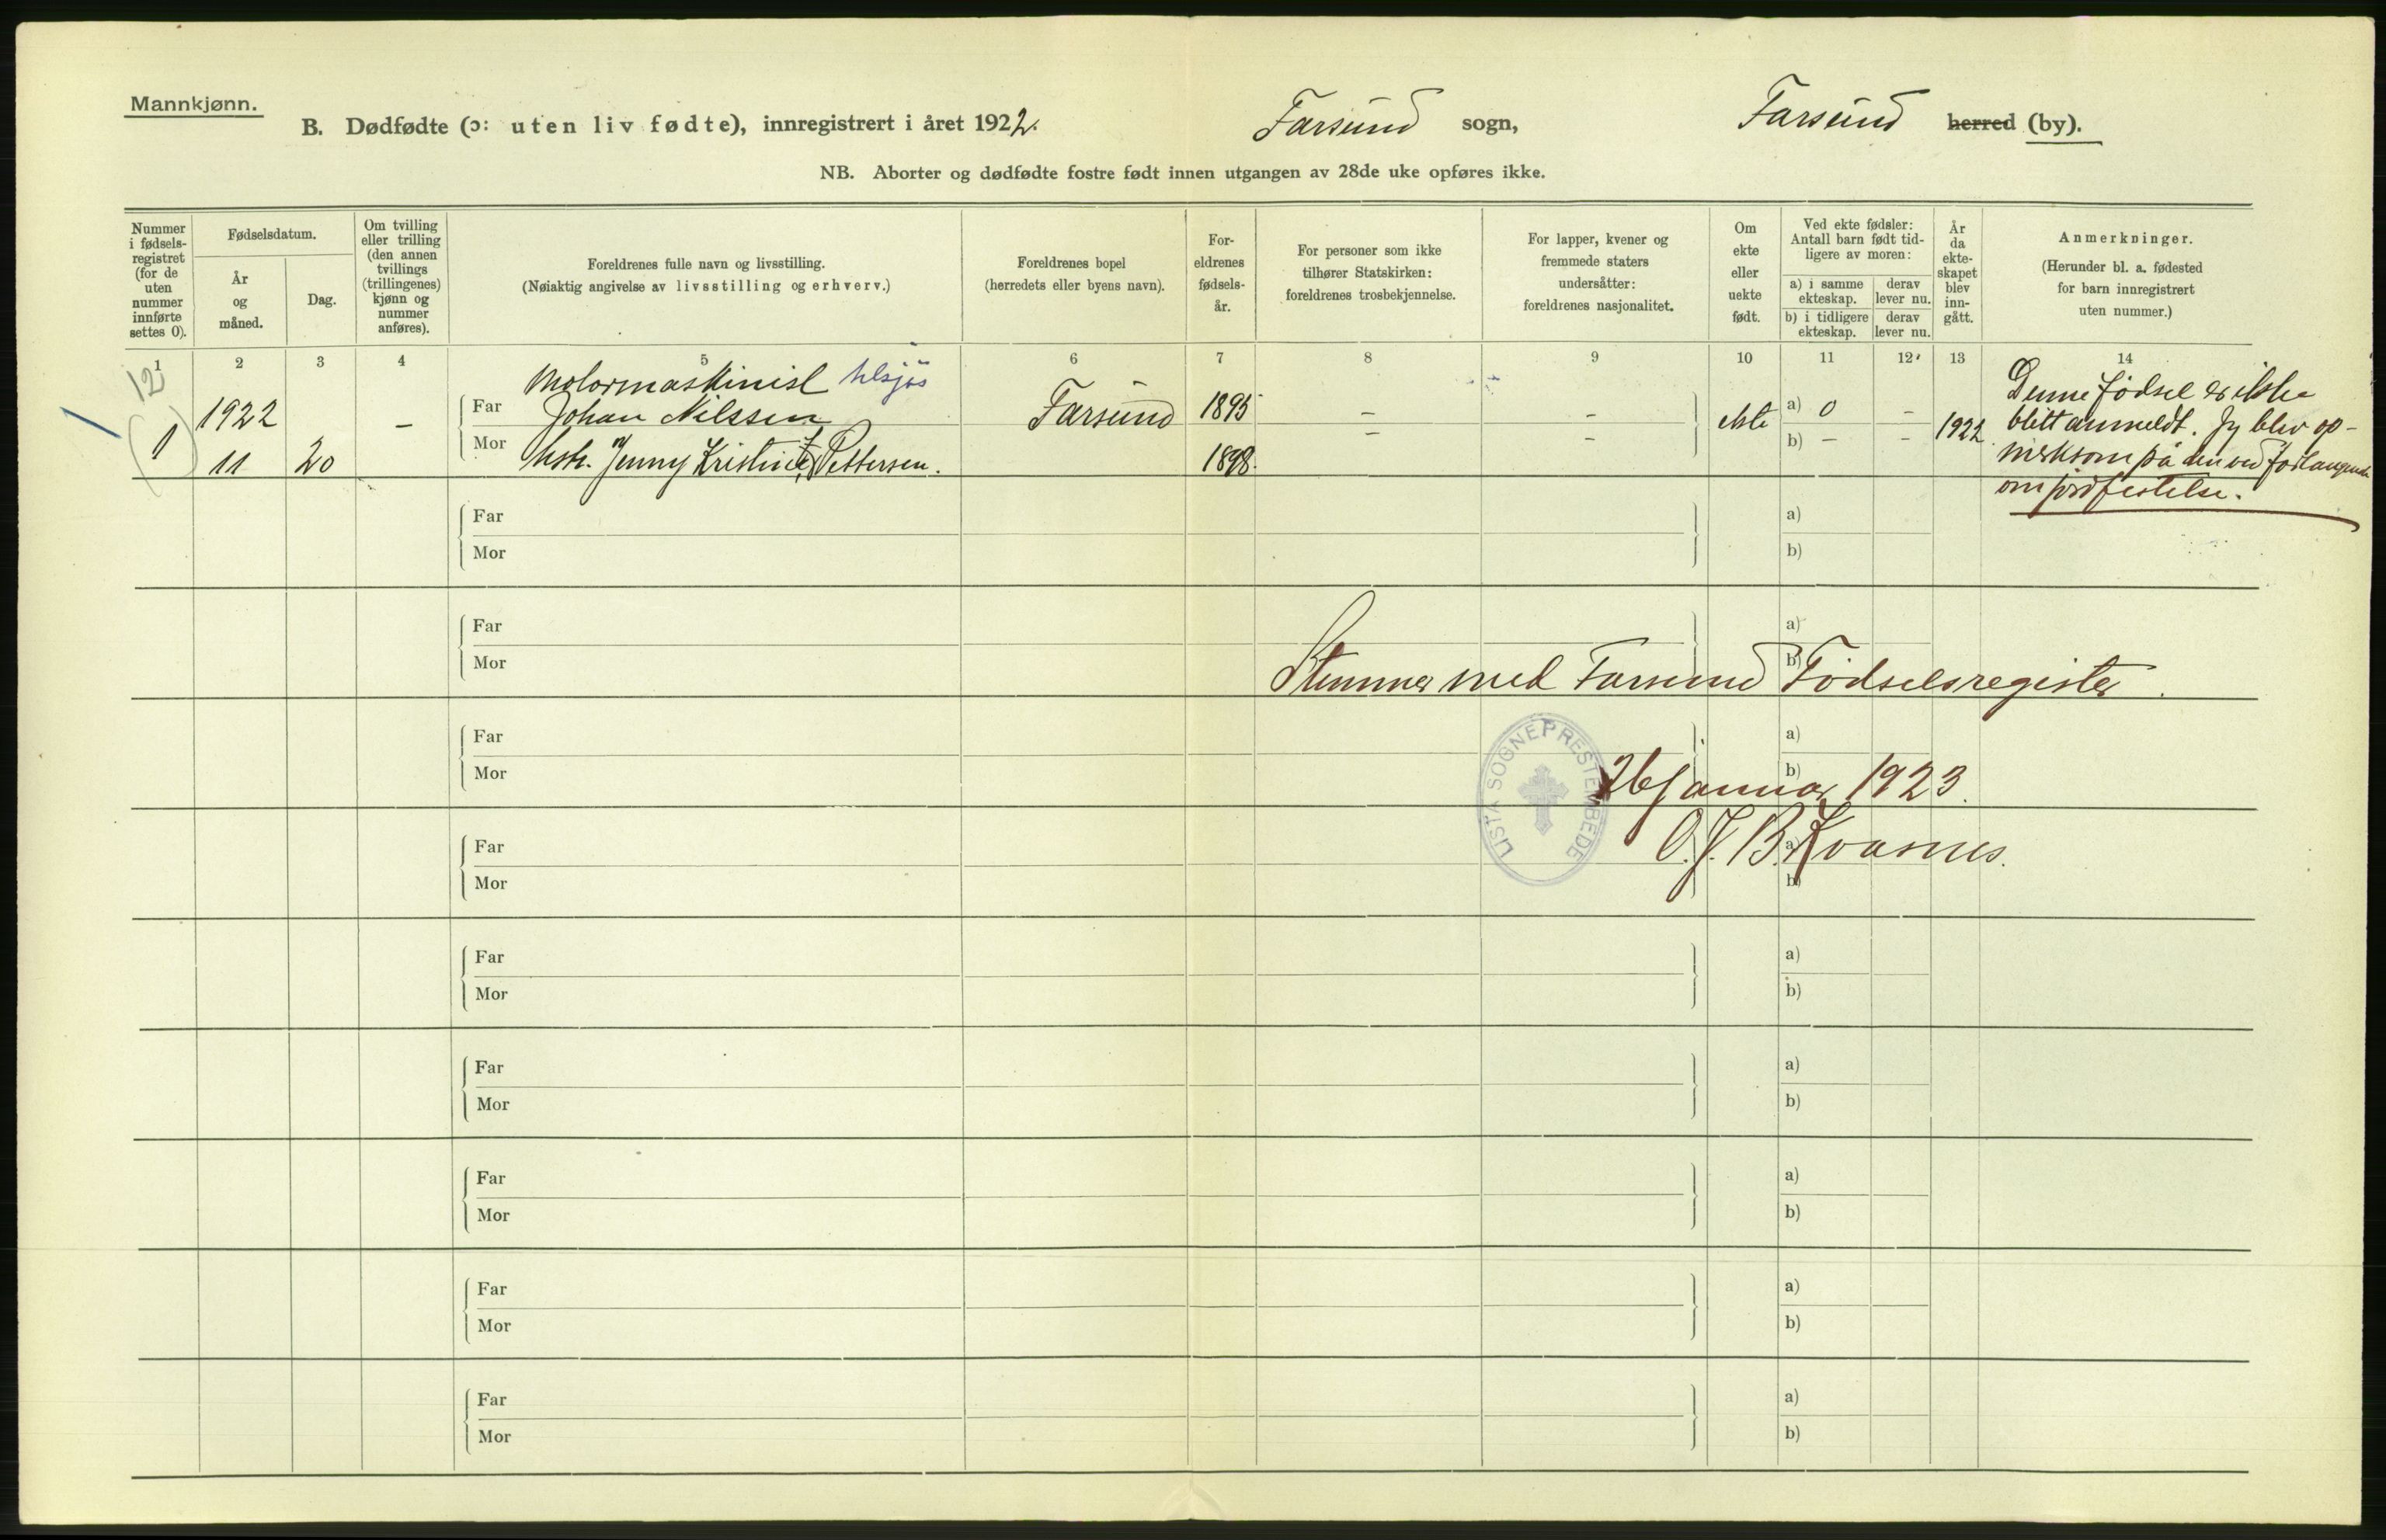 Mannkjønn.
B. Dødfødte (ɔ: uten liv fødte), innregistrert i året 1922. Farsund sogn, Farsund herred (by).
NB. Aborter og dødfødte fostre født innen utgangen av 28de uke opføres ikke.
Nummer i fødsels-registret (for de uten nummer innførte settes 0).
Fødselsdatum.
År og måned.
Dag.
Om tvilling eller trilling (den annen tvillings (trillingenes) kjønn og nummer anføres).
Foreldrenes fulle navn og livsstilling.
(Nøiaktig angivelse av livsstilling og erhverv.)
Foreldrenes bopel
(herredets eller byens navn).
For-eldrenes fødsels-år.
For personer som ikke tilhører Statskirken: foreldrenes trosbekjennelse.
For lapper, kvener og fremmede staters undersåtter: foreldrenes nasjonalitet.
Om ekte eller uekte født.
Ved ekte fødsler:
Antall barn født tid-ligere av moren:
a) i samme ekteskap.
derav lever nu.
b) i tidligere ekteskap.
derav lever nu.
År da ekte-skapet blev inn-gått.
Anmerkninger.
(Herunder bl. a. fødested for barn innregistrert uten nummer.)
1 2 3 4 5 6 7 8 9 10 11 12 13 14
12
Motormaskinist
1
1922
11 20
–
Far Johan Nilssen Farsund 1895 – – ekte a) 0 – 1922.
Mor Hstr. Jenny Kristine f. Pettersen. 1898. – – b) – –
Denne fødsel er ikke
blitt anmeldt. Jeg blev op-
merksom på den ved forlangende
om jordfestelse.
Far a)
Mor b)
Far a)
Mor b)
Stemmer med Farsund Fødselsregister.
Far a)
Mor b)
LISTA SOGNEPRESTEMBEDE
26 januar 1923.
O. J. B. Kvasnes.
Far a)
Mor b)
Far a)
Mor b)
Far a)
Mor b)
Far a)
Mor b)
Far a)
Mor b)
Far a)
Mor b)